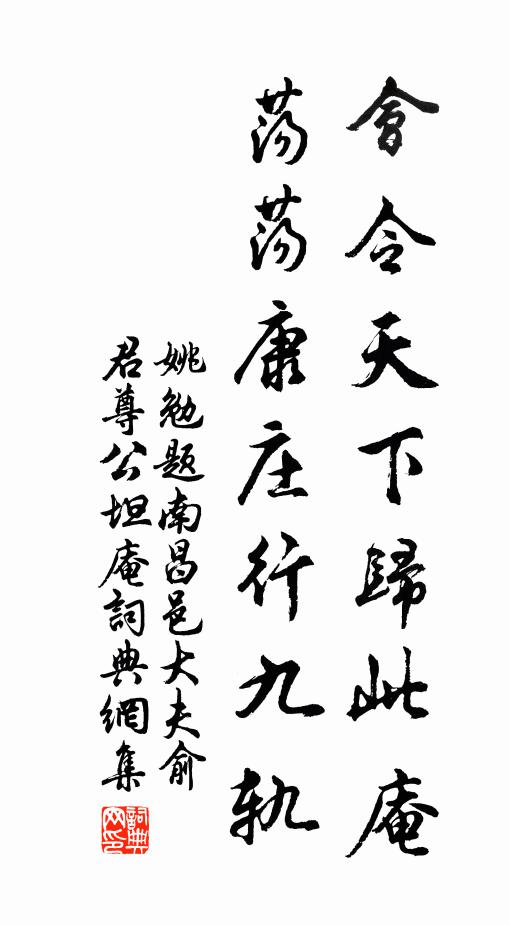 會令天下歸此庵
蕩蕩康庄行九軌
姚勉題南昌邑大夫俞
君尊公坦庵詞典網集
詞典網印